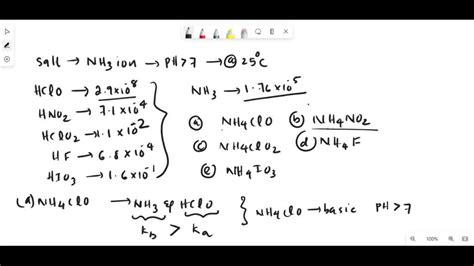 salt → NH3 ion → PH>7 → @ 25°C
HClO → 2.9x10^-8
NH3 → 1.76x10^-5
HNO2 → 7.1x10^-4
HClO2 → 1.1x10^-2
HF → 6.8x10^-4
HIO3 → 1.6x10^-1
(a) NH4ClO (b) NH4NO2
(c) NH4ClO2 (d) NH4F
(e) NH4IO3
(a) NH4ClO → NH3 & HClO } NH4ClO → basic PH>7
Kb > Ka
100%